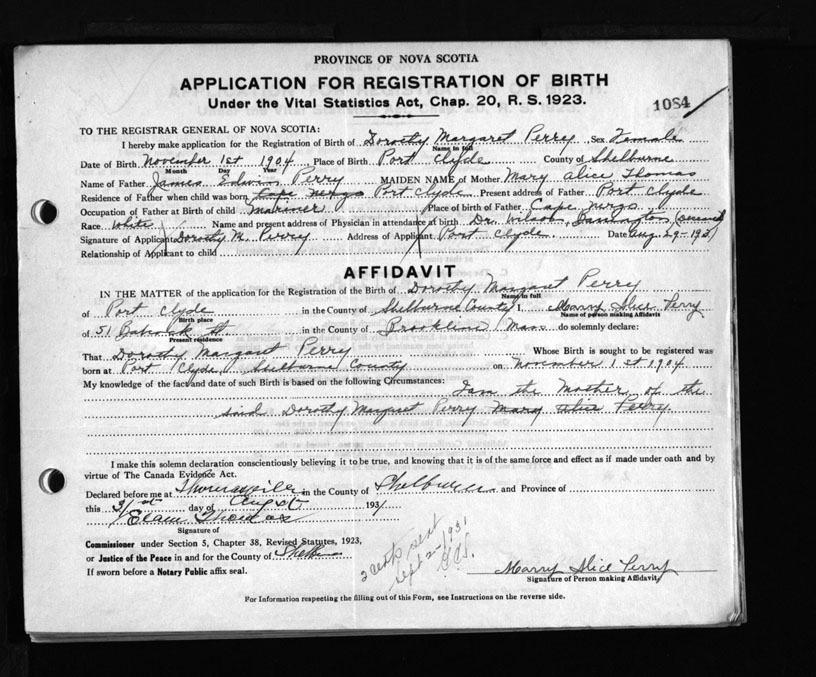 PROVINCE OF NOVA SCOTIA
APPLICATION FOR REGISTRATION OF BIRTH
Under the Vital Statistics Act, Chap. 20, R. S. 1923.
1084
TO THE REGISTRAR GENERAL OF NOVA SCOTIA:
I hereby make application for the Registration of Birth of Dorothy Margaret Perry Sex Female
Name in full
Date of Birth November 1st 1904 Place of Birth Port Clyde County of Shelburne
Month Day Year
Name of Father James Edwin Perry MAIDEN NAME of Mother Mary Alice Thomas
Residence of Father when child was born Cape Negro Port Clyde Present address of Father Port Clyde
Occupation of Father at Birth of child Mariner Place of birth of Father Cape Negro
Race White Name and present address of Physician in attendance at birth Dr. Wilson, Barrington (Deceased)
Signature of Applicant Dorothy M. Perry Address of Applicant Port Clyde. Date Aug. 29 - 1931
Relationship of Applicant to child
AFFIDAVIT
IN THE MATTER of the application for the Registration of the Birth of Dorothy Margaret Perry
Name in full
of Port Clyde in the County of Shelburne County I, Marry Alice Perry
Birth place Name of person making Affidavit
of 51 St in the County of Brookline Mass do solemnly declare:
Present residence
That Dorothy Margaret Perry Whose Birth is sought to be registered was
born at Port Clyde, Shelburne County on November 1st 1904
My knowledge of the fact and date of such Birth is based on the following Circumstances: I am the Mother of the
said Dorothy Margaret Perry Mary Alice Perry
I make this solemn declaration conscientiously believing it to be true, and knowing that it is of the same force and effect as if made under oath and by
virtue of The Canada Evidence Act.
Declared before me at in the County of Shelburne and Province of
this 31st day of August 1931
Thomas
Signature of
Commissioner under Section 5, Chapter 38, Revised Statutes, 1923,
or Justice of the Peace in and for the County of
If sworn before a Notary Public affix seal.
2 sent
Sept 2-1931
Marry Alice Perry
Signature of Person making Affidavit
For Information respecting the filling out of this Form, see Instructions on the reverse side.